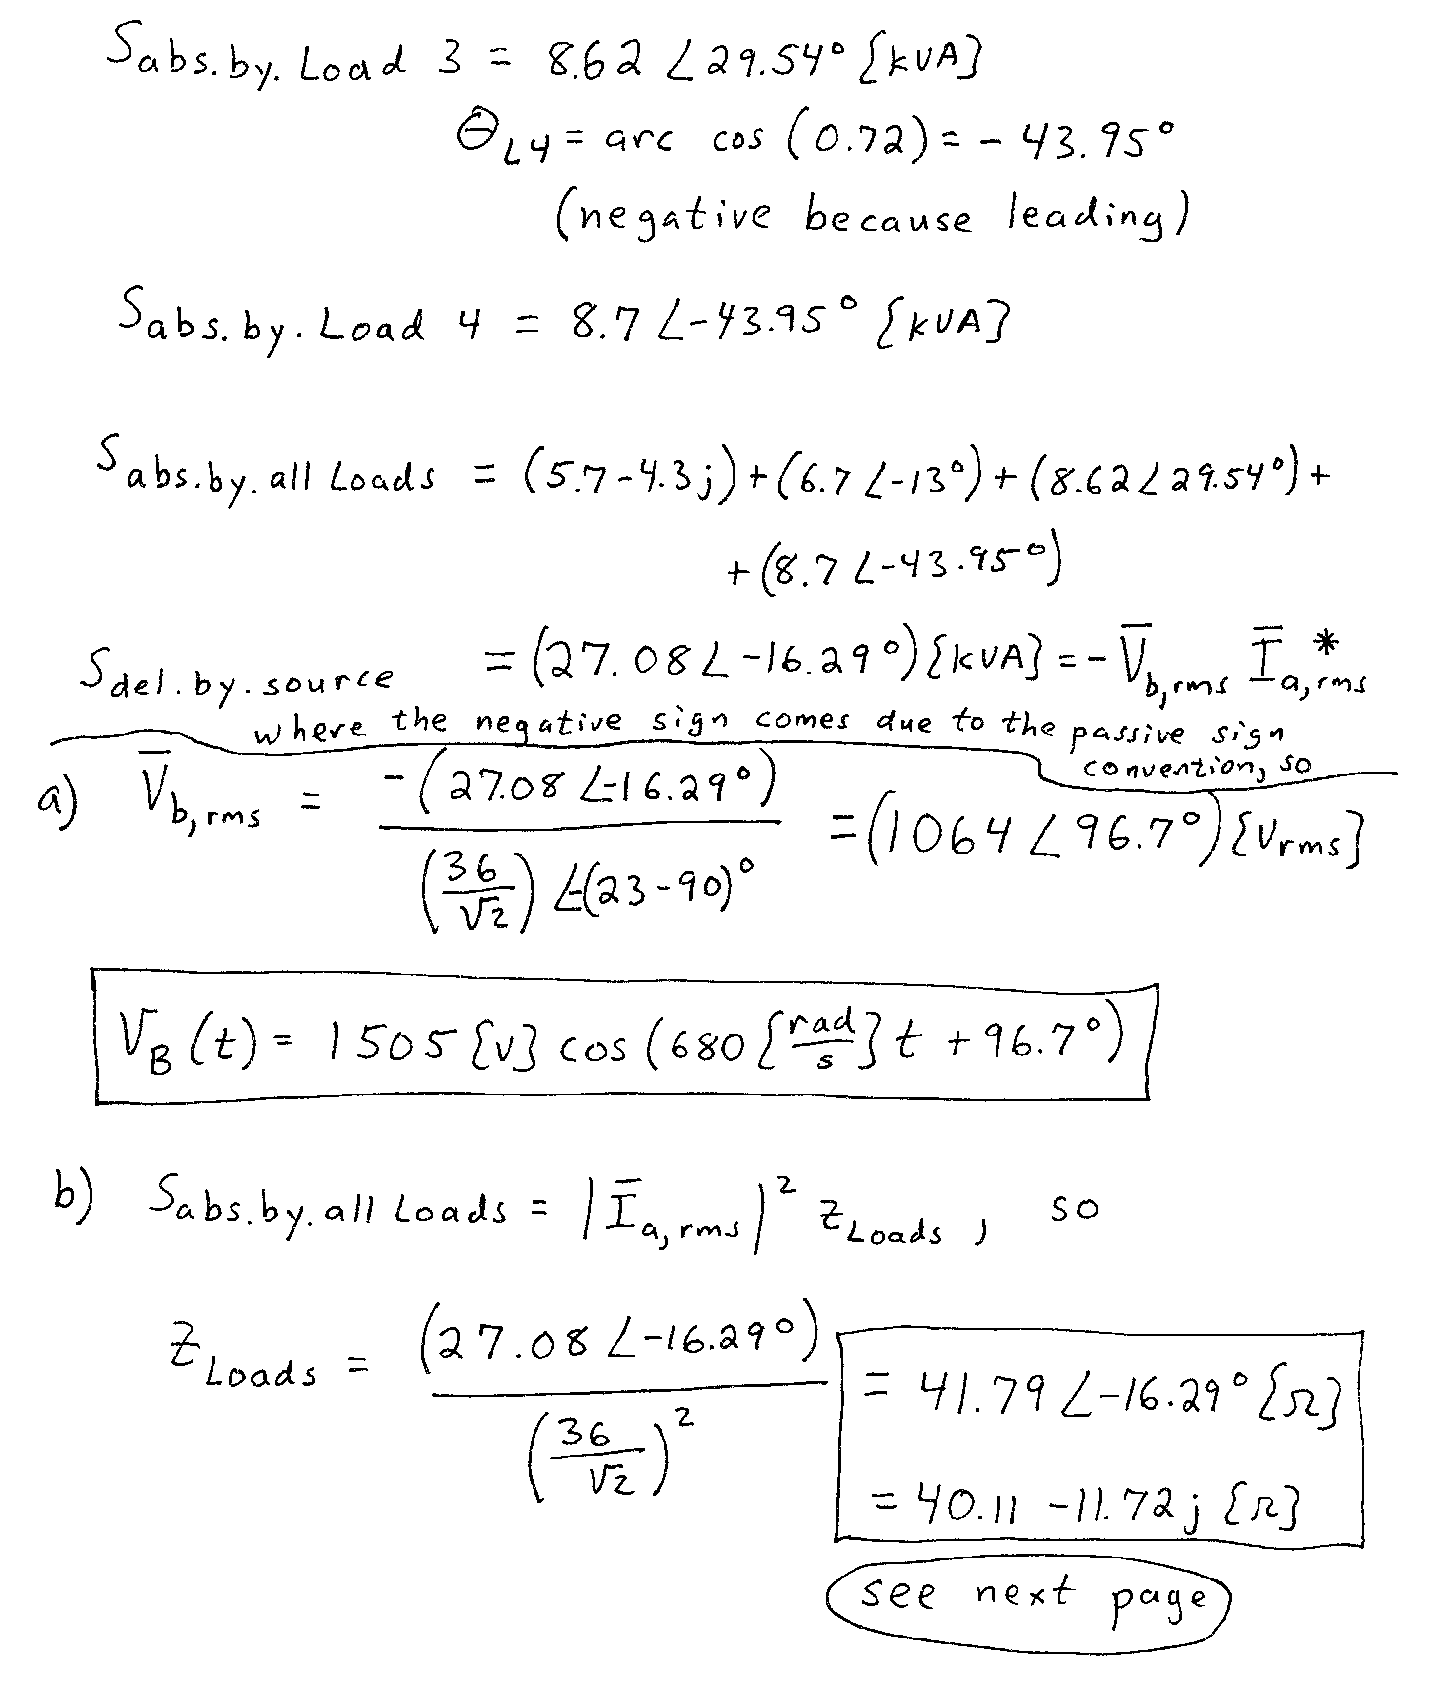 Sabs.by. Load 3 = 8.62 ∠29.54° {kVA}
ΘL4 = arc cos (0.72) = - 43.95°
(negative because leading)
Sabs.by. Load 4 = 8.7 ∠-43.95° {kVA}
Sabs.by. all Loads = (5.7-4.3j)+(6.7∠-13°)+(8.62∠29.54°)+
+(8.7∠-43.95°)
Sdel.by.source = (27.08∠-16.29°){kVA} = -V̅b,rms I̅a,rms*
where the negative sign comes due to the passive sign
convention, so
a) V̅b,rms = -(27.08∠-16.29°) / (36/√2) ∠-(23-90)° = (1064∠96.7°){Vrms}
VB(t) = 1505{V} cos(680{rad/s}t +96.7°)
b) Sabs.by. all Loads = |I̅a,rms|² ZLoads, so
ZLoads = (27.08∠-16.29°) / (36/√2)² = 41.79∠-16.29°{Ω}
= 40.11 -11.72j {Ω}
see next page